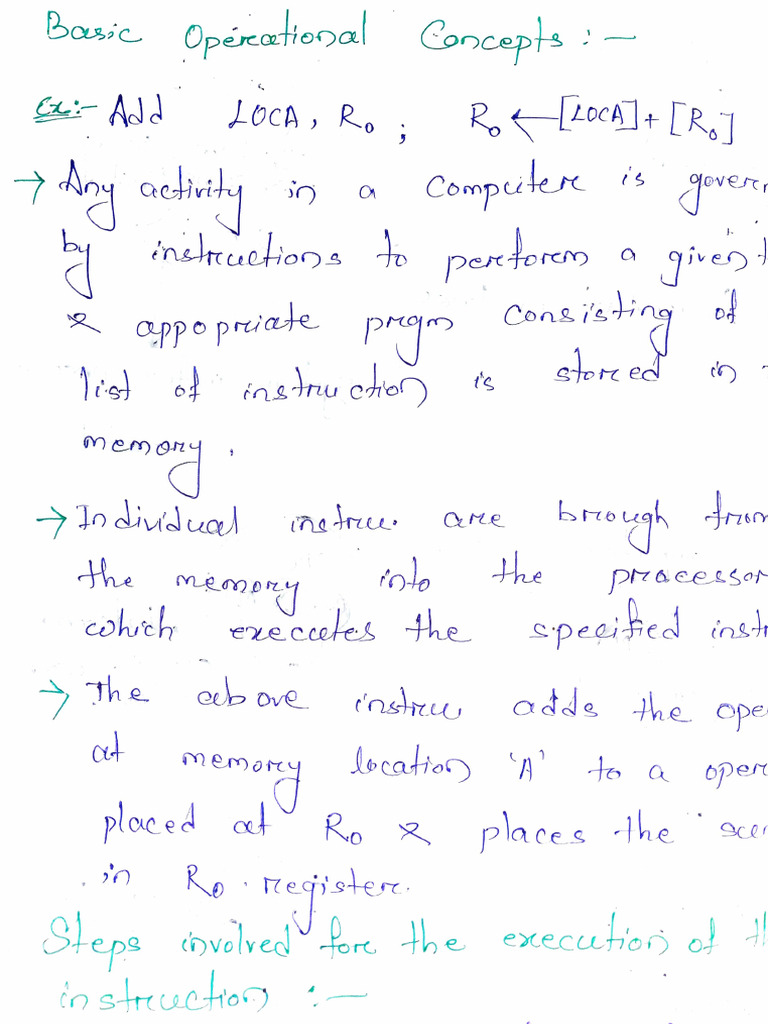 Basic Operational Concepts :-
Ex:- Add LOCA, R0 ; R0 ← [LOCA] + [R0]
→ Any activity in a computer is govern
by instructions to perform a given t
& appopriate prgm consisting of
list of instruction is stored in
memory.
→ Individual instru. are brough from
the memory into the processor
which executes the specified instr
→ The above instru adds the ope
at memory location 'A' to a oper
placed at R0 & places the
in R0 register.
Steps involved for the execution of th
instruction :-